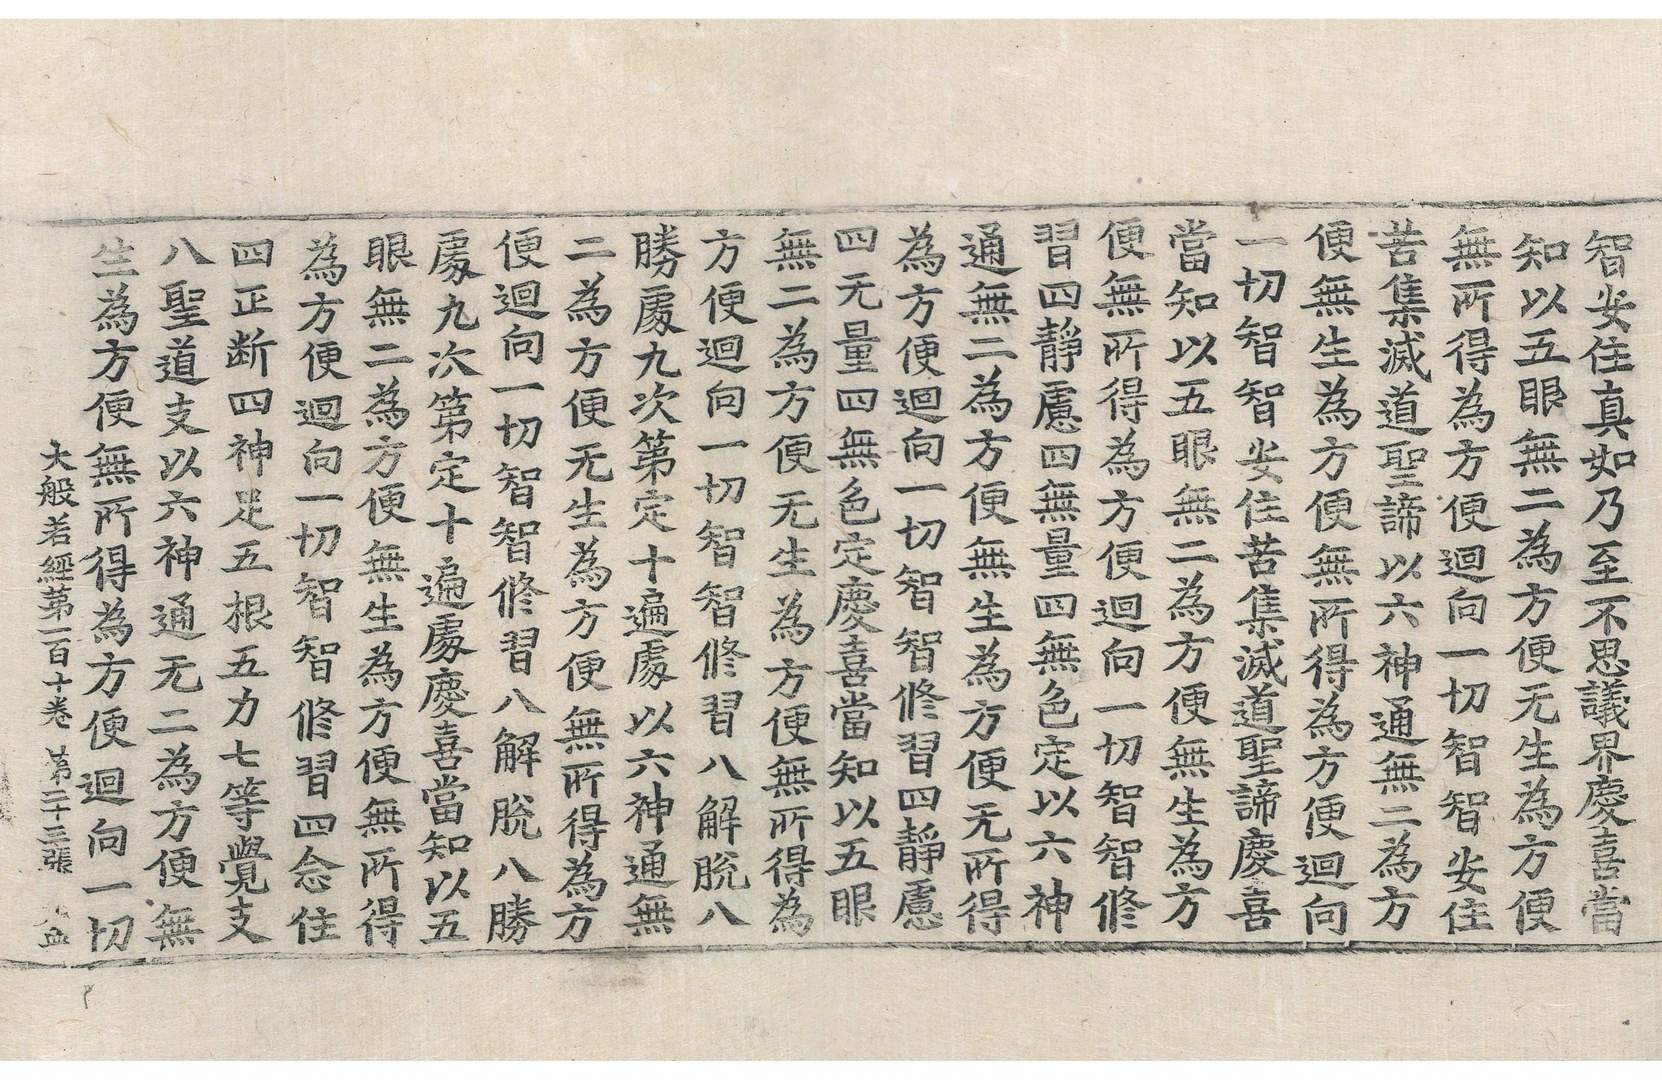 智安住真如乃至不思議界慶喜當
知以五眼無二為方便无生為方便
無所得為方便迴向一切智智安住
苦集滅道聖諦以六神通無二為方
便無生為方便無所得為方便迴向
一切智智安住苦集滅道聖諦慶喜
當知以五眼無二為方便無生為方
便無所得為方便迴向一切智智修
習四靜慮四無量四無色定以六神
通無二為方便無生為方便无所得
為方便迴向一切智智修習四靜慮
四无量四無色定慶喜當知以五眼
無二為方便无生為方便無所得為
方便迴向一切智智修習八解脫八
勝處九次第定十遍處以六神通無
二為方便无生為方便無所得為方
便迴向一切智智修習八解脫八勝
處九次第定十遍處慶喜當知以五
眼無二為方便無生為方便無所得
為方便迴向一切智智修習四念住
四正断四神足五根五力七等覺支
八聖道支以六神通无二為方便無
生為方便無所得為方便迴向一切
大般若經第一百十卷 第二十三張